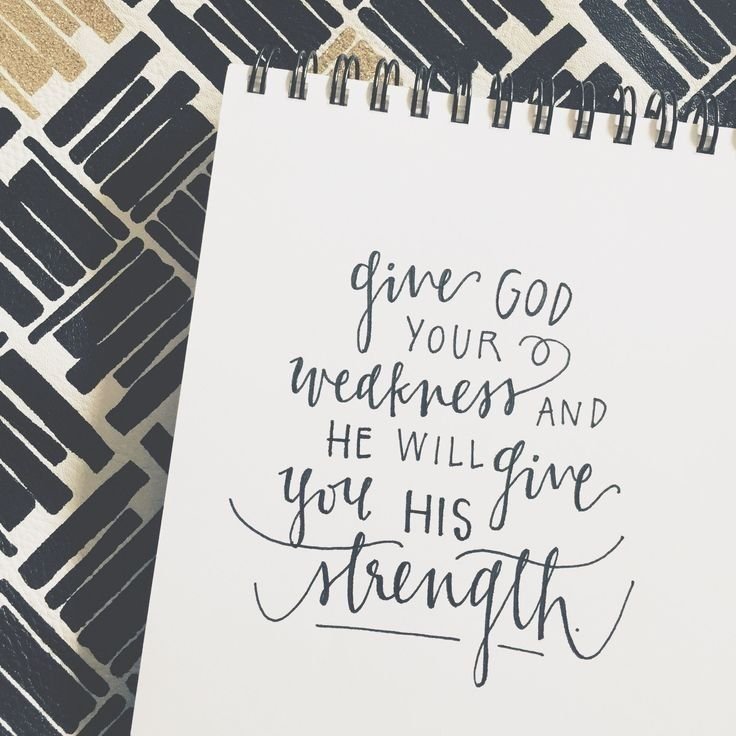 give GOD
YOUR
weakness AND
HE WILL give
you HIS
strength.